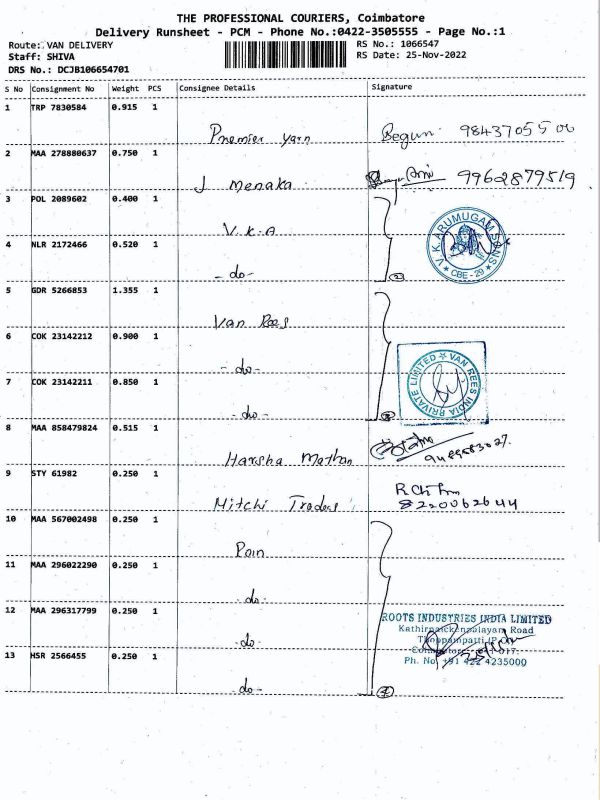 THE PROFESSIONAL COURIERS, Coimbatore
Delivery Runsheet - PCM - Phone No.:0422-3505555 - Page No.:1
Route: VAN DELIVERY
RS No.: 1066547
Staff: SHIVA
RS Date: 25-Nov-2022
DRS No.: DCJB106654701
S No Consignment No Weight PCS Consignee Details Signature
1 TRP 7830584 0.915 1
Premier yarn Begum 98437055 00
2 MAA 278880637 0.750 1
J Menaka 9962879519
3 POL 2089602 0.400 1
V.K.A
V.K. ARUMUGAM SONS
CBE - 29
4 NLR 2172466 0.520 1
- do -
5 GDR 5266853 1.355 1
Van Rees
6 COK 23142212 0.900 1
- do -
VAN REES INDIA PRIVATE LIMITED
7 COK 23142211 0.850 1
- do -
8 MAA 858479824 0.515 1
Harsha Mathan 9489583027
9 STY 61982 0.250 1
Mitchi Traders 8220062644
10 MAA 567002498 0.250 1
Pain
11 MAA 296022290 0.250 1
- do -
12 MAA 296317799 0.250 1
- do -
ROOTS INDUSTRIES INDIA LIMITED
Kathirnaickenpalayam Road
Thoppampatti
Ph. No +91 422 4235000
13 HSR 2566455 0.250 1
- do -